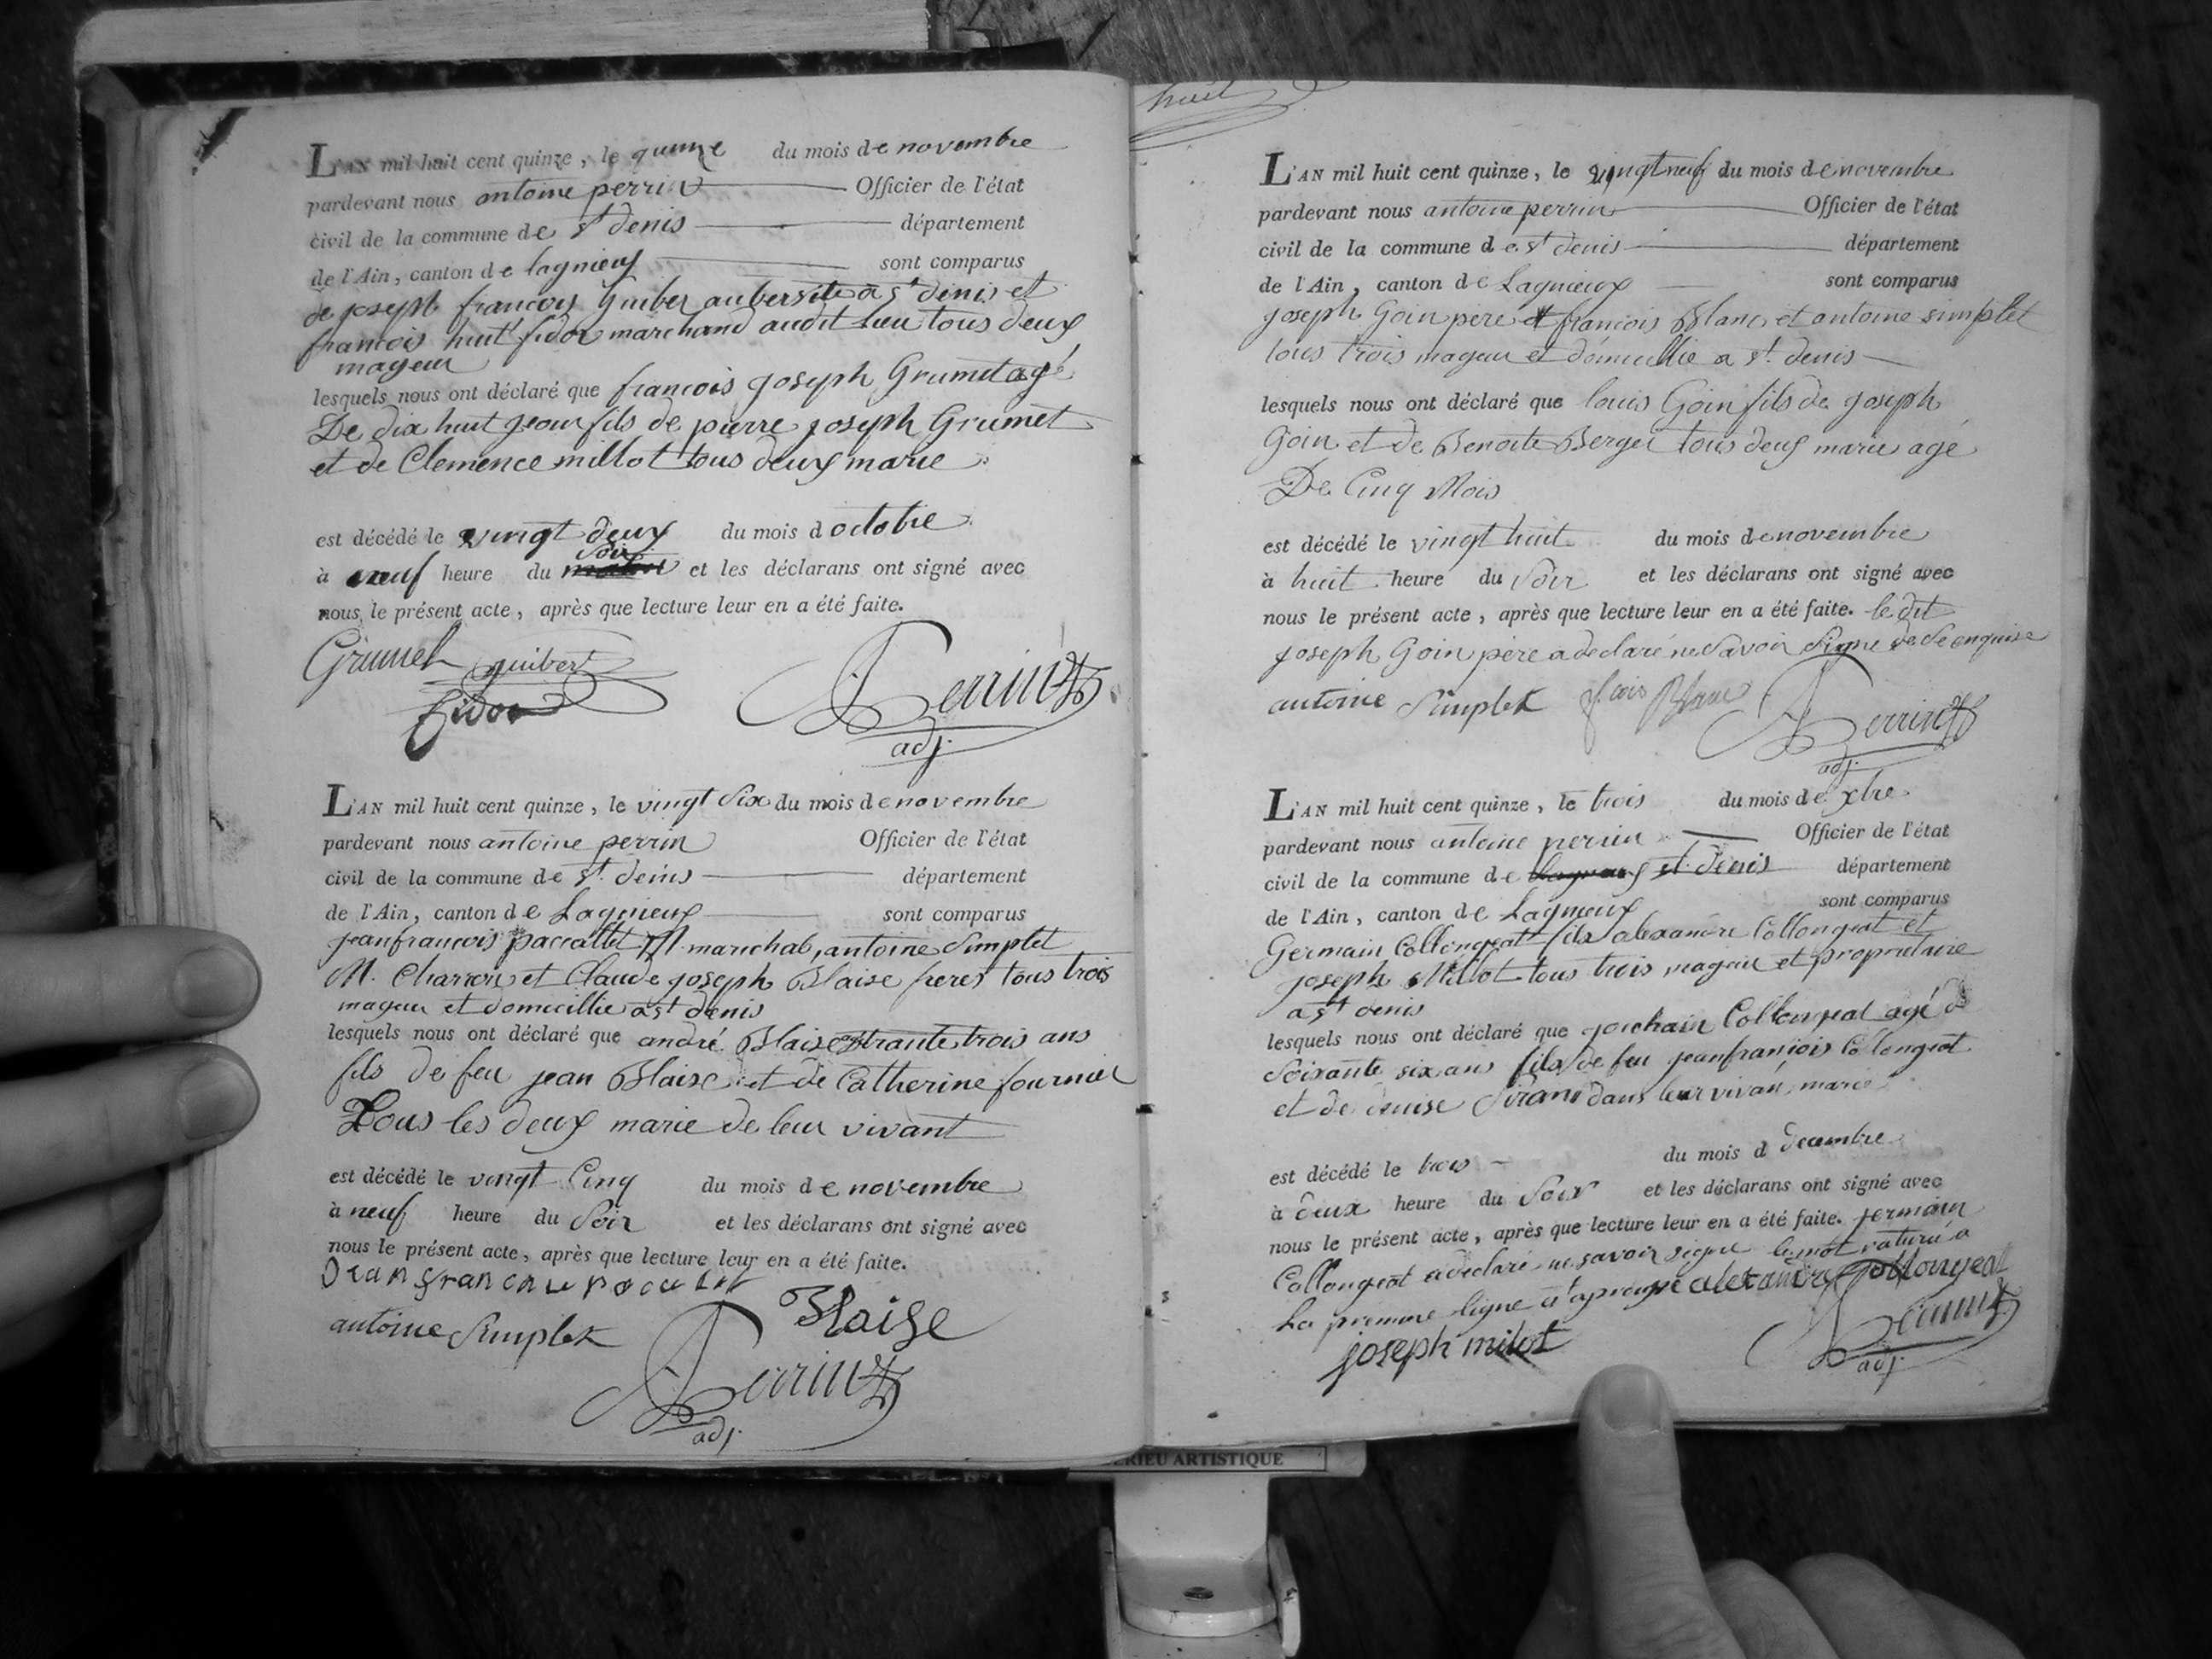 L'AN mil huit cent quinze, le quinze du mois de novembre
pardevant nous antoine perrin Officier de l'état
civil de la commune de st denis département
de l'Ain, canton de lagnieux sont comparus
de joseph francois Guiber aubersite a st denis et
francois huit fidor marchand audit lieu tous deux
mageur
lesquels nous ont déclaré que francois joseph Grumet agé
De dix huit jour fils de pierre joseph Grumet
et de Clemence millot tous deux marie
est décédé le vingt deux du mois d octobre
à neuf heure du soir et les déclarans ont signé avec
nous le présent acte, après que lecture leur en a été faite.
Grumet guibert
fidor Perrin
adj.
L'AN mil huit cent quinze, le vingt six du mois de novembre
pardevant nous antoine perrin Officier de l'état
civil de la commune de st. denis département
de l'Ain, canton de Lagnieux sont comparus
jeanfrancois paccallet M. marichal, antoine Simplet
M. Charron et Claude joseph Blaise freres tous trois
mageur et domicillie a st denis
lesquels nous ont déclaré que andré Blaise trante trois ans
fils de feu jean Blaise et de Catherine fournier
Tous les deux marie de leur vivant
est décédé le vingt Cinq du mois de novembre
à neuf heure du Soir et les déclarans ont signé avec
nous le présent acte, après que lecture leur en a été faite.
antoine Simplet Blaise
Perrin
adj.
huit
L'AN mil huit cent quinze, le vingt neuf du mois de novembre
pardevant nous antoine perrin Officier de l'état
civil de la commune de st denis département
de l'Ain, canton de Lagnieux sont comparus
joseph Goin pere et francois Blanc et antoine simplet
tous trois mageur et domicillie a st. denis
lesquels nous ont déclaré que louis Goin fils de joseph
Goin et de Benoite Berger tous deux marie agé
De Cinq Mois
est décédé le vingt huit du mois de novembre
à huit heure du Soir et les déclarans ont signé avec
nous le présent acte, après que lecture leur en a été faite. le dit
joseph Goin père a declaré ne Savoir Signe de Se enquise
antoine Simplet f.cois Blanc Perrin
adj.
L'AN mil huit cent quinze, le trois du mois de xbre
pardevant nous antoine perrin Officier de l'état
civil de la commune de st. denis département
de l'Ain, canton de Lagnieux sont comparus
Germain Collongeat fils alexandre Collongeat et
joseph Millot tous trois mageur et propriétaire
a st denis
lesquels nous ont déclaré que joachain Collongeat agé de
Soixante six ans fils de feu jeanfranjois Collongeat
et de denise Sirand dans leur vivan marié
est décédé le trois du mois d decembre
à deux heure du Soir et les déclarans ont signé avec
nous le présent acte, après que lecture leur en a été faite. germain
Collongeat a declaré ne savoir signe le mot raturé a
La premiere ligne et aprouvé alexandre Collongeat
joseph milot Perrin
adj.
ERIEU ARTISTIQUE